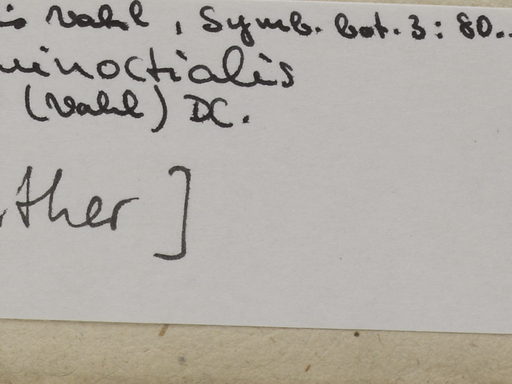 is Vahl, Symb. bot. 3: 80..
uinoctialis
(Vahl) DC.
ther ]